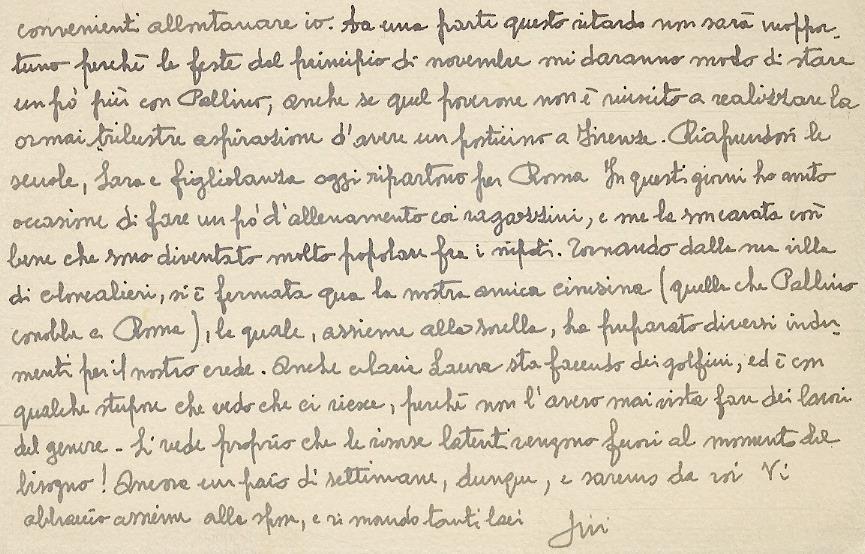 convenienti allontanare io. Da una parte questo ritardo non sarà inoppor-
tuno perché le feste del principio di novembre mi daranno modo di stare
un pò più con Pallino, anche se quel poverone non è riuscito a realizzare la
ormai trilustre aspirazione d'avere un posticino a Firenze. Riaprendosi le
scuole, Lara e figliolanza oggi ripartono per Roma In questi giorni ho avuto
occasione di fare un pò d'allenamento coi ragazzini, e me la son cavata così
bene che sono diventato molto popolare fra i nipoti. Tornando dalla sua villa
di Moncalieri, si è fermata qua la nostra amica cinesina (quella che Pallino
conobbe a Roma), la quale, assieme alla sorella, ha preparato diversi indu-
menti per il nostro erede. Anche Maria Laura sta facendo dei golfini, ed è con
qualche stupore che vedo che ci riesce, perché non l'avevo mai vista fare dei lavori
del genere - Si vede proprio che le risorse latenti vengono fuori al momento del
bisogno! Ancora un paio di settimane, dunque, e saremo da voi Vi
abbraccio assieme alla sposa, e vi mando tanti baci